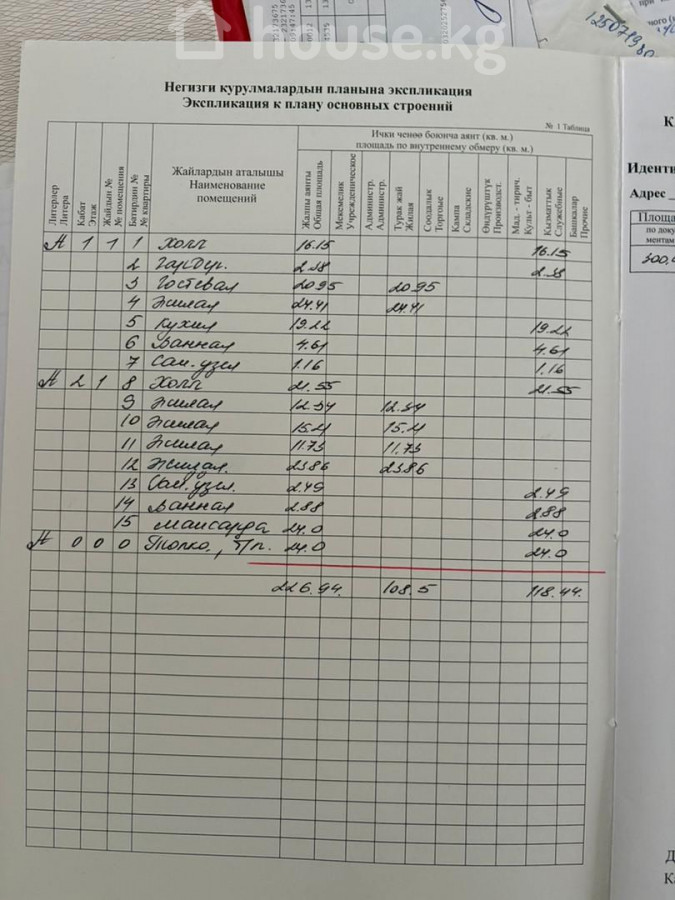 house.kg
Негизги курулмалардын планына экспликация
Экспликация к плану основных строений
№ 1 Таблица
Ички ченөө боюнча аянт (кв. м.)
площадь по внутреннему обмеру (кв. м.)
Литерлер
Литера
Кабат
Этаж
Жайдын №
№ помещения
Батирдин №
№ квартиры
Жайлардын аталышы
Наименование
помещений
Жалпы аянты
Общая площадь
Мекемелик
Учрежденическое
Администр.
Администр.
Турак жай
Жилая
Соодалык
Торговые
Кампа
Складские
Өндүрүштүк
Производст.
Мад. - тирич.
Культ - быт
Кызматтык
Служебные
Башкалар
Прочие
А 1 1 1 Холл 16.15 16.15
2 2.38 2.38
3 Гостевая 20.95 20.95
4 Жилая 24.41 24.41
5 Кухня 19.22 19.22
6 Ванная 4.61 4.61
7 Сан. узел 1.16 1.16
А 2 1 8 Холл 21.55 21.55
9 Жилая 12.34 12.34
10 Жилая 15.21 15.21
11 Жилая 11.73 11.73
12 Жилая. 23.86 23.86
13 Сан. узел. 2.49 2.49
14 Ванная 2.88 2.88
15 мансарда 24.0 24.0
А 0 0 0 24.0 24.0
226.94. 108.5 118.44.
Иденти
Адрес
Площа
по доку
ментам